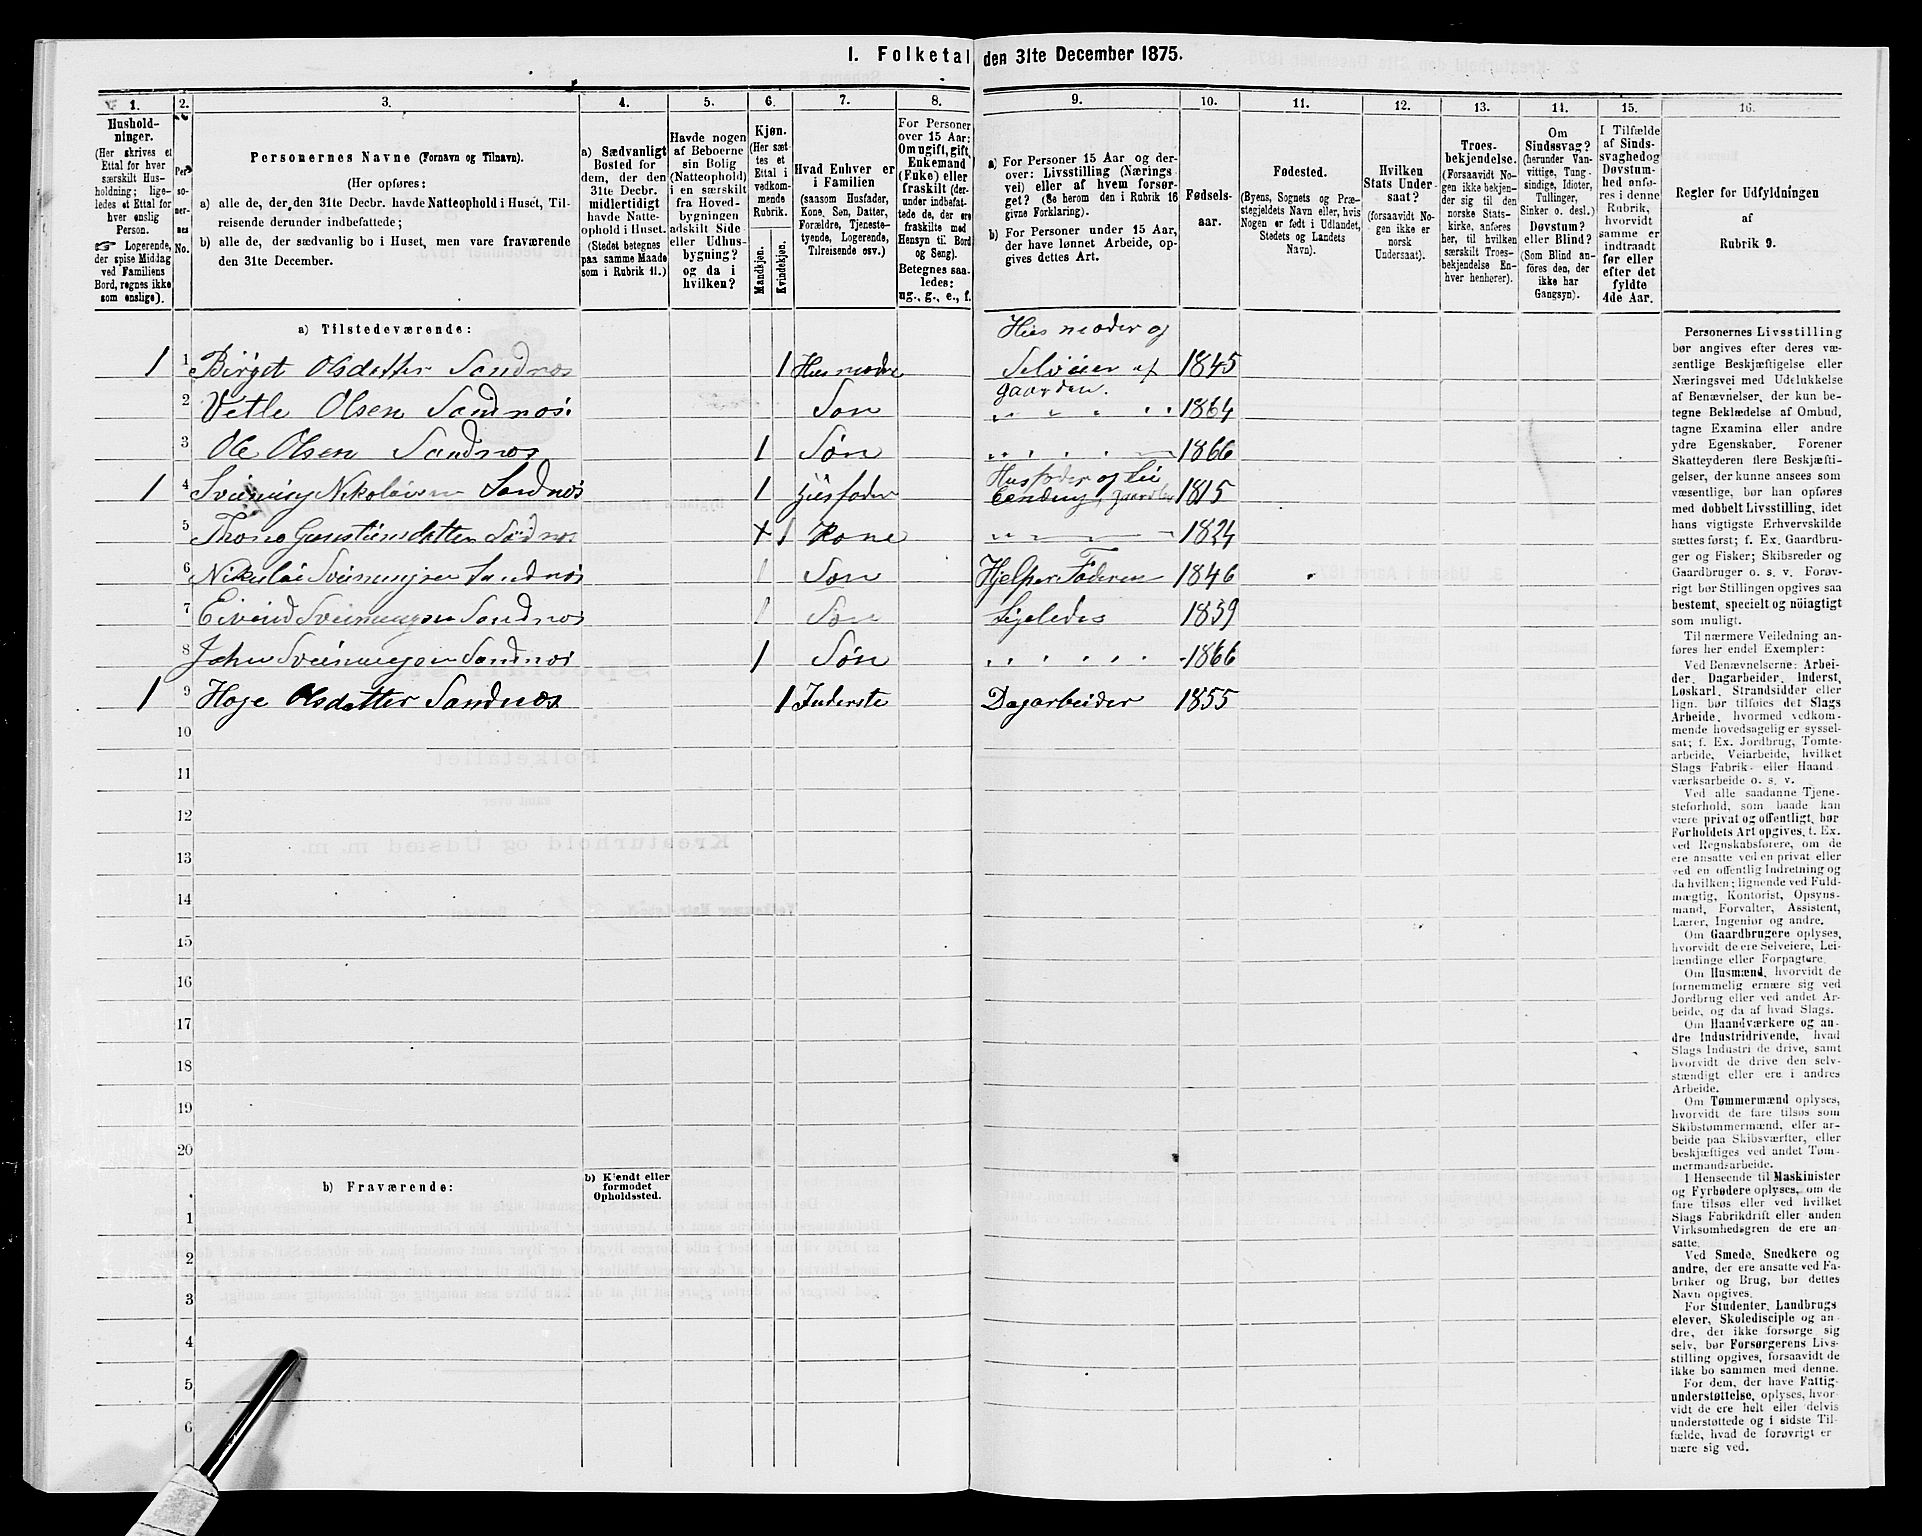 I. Folketal den 31te December 1875.
1.
Husholdninger.
(Her skrives et
Ettal for hver
særskilt Husholdning; ligeledes et Ettal for
hver enslig
Person.
☞ Logerende,
der spise Middag
ved Familiens
Bord, regnes ikke
som enslige).
2.
Personernes
No.
3.
Personernes Navne (Fornavn og Tilnavn).
(Her opføres:
a) alle de, der den 31te Decbr. havde Natteophold i Huset, Tilreisende derunder indbefattede;
b) alle de, der sædvanlig bo i Huset, men vare fraværende
den 31te December.
4.
a) Sædvanligt
Bosted for
dem, der den
31te Decbr.
midlertidigt
havde Natteophold i Huset.
(Stedet betegnes
paa samme Maade
som i Rubrik 11.)
5.
Havde nogen
af Beboerne
sin Bolig
(Natteophold)
i en særskilt
fra Hovedbygningen
adskilt Side
eller Udhusbygning?
og da i
hvilken?
6.
Kjøn.
(Her sættes et
Ettal i
vedkommende
Rubrik.
Mandkjøn.
Kvindekjøn.
7.
Hvad Enhver er
i Familien
(saasom Husfader,
Kone, Søn, Datter,
Forældre, Tjenestetyende, Logerende,
Tilreisende osv.)
8.
For Personer
over 15 Aar:
Om ugift, gift,
Enkemand
(Enke) eller
fraskilt (derunder indbefattede de, der ere
fraskilte med
Hensyn til Bord
og Seng).
Betegnes saaledes:
ug., g., e., f.
9.
a) For Personer 15 Aar og derover: Livsstilling (Næringsvei) eller af hvem forsørget? (Se herom den i Rubrik 16
givne Forklaring).
b) For Personer under 15 Aar,
der have lønnet Arbeide, opgives dettes Art.
10.
Fødselsaar.
11.
Fødested.
(Byens, Sognets og Præstegjeldets Navn eller, hvis
Nogen er født i Udlandet,
Stedets og Landets
Navn).
12.
Hvilken
Stats Undersaat?
(forsaavidt Nogen ikke er
norsk
Undersaat).
13.
Troesbekjendelse.
(Forsaavidt Nogen ikke bekjender sig til den
norske Statskirke, anføres
her, til hvilken
særskilt Troesbekjendelse Enhver henhører).
14.
Om
Sindssvag?
(herunder Vanvittige, Tungsindige, Idioter,
Tullinger,
Sinker o. desl.)
Døvstum?
eller Blind?
(Som Blind anføres den, der
ikke har
Gangsyn).
15.
I Tilfælde
af Sindssvaghed og
Døvstumhed anføres i denne
Rubrik,
hvorvidt
samme er
indtraadt
før eller
efter det
fyldte
4de Aar.
16.
Regler for Udfyldningen
af
Rubrik 9.
a) Tilstedeværende:
Husmoder og
1 1 Birget Olsdatter Sandnes 1 Husmoder Selveier af 1845
gaarden.
2 Vetle Olsen Sandnæs. Søn 1864
3 Ole Olsen Sandnæs 1 Søn 1866
Husfader og
1 4 Nikolaisen Sandnæs 1 Husfader 1815
5 Sandnæs 1 Kone 1824
6 Nikolai Sveinungsen Sandnæs 1 Søn Hjelper Faderen 1846
7 Eivind Sveinungsen Sandnæs 1 Søn Ligeledes 1859
8 John Sveinungsen Sandnæs 1 Søn 1866
1 9 Hage Olsdatter Sandnæs 1 Inderste Dagarbeider 1855
10
11
12
13
14
15
16
17
18
19
20
b) Fraværende:
b) Kjendt eller
formodet
Opholdssted.
1
2
3
4
5
6
Personernes Livsstilling
bør angives efter deres væsentlige Beskjæftigelse eller
Næringsvei med Udelukkelse
af Benævnelser, der kun betegne Beklædelse af Ombud,
tagne Examina eller andre
ydre Egenskaber. Forener
Skatteyderen flere Beskjæftigelser, der kunne ansees som
væsentlige, bør han opføres
med dobbelt Livsstilling, idet
hans vigtigste Erhvervskilde
sættes først; f. Ex. Gaardbruger og Fisker; Skibsreder og
Gaardbruger o. s. v. Forøvrigt bør Stillingen opgives saa
bestemt, specielt og nöiagtigt
som muligt.
Til nærmere Veiledning anføres her endel Exempler:
Ved Benævnelserne: Arbeider, Dagarbeider, Inderst,
Løskarl, Strandsidder eller
lign. bør tilføies det Slags
Arbeide, hvormed vedkommende hovedsagelig er sysselsat; f. Ex. Jordbrug, Tomtearbeide, Veiarbeide, hvilket
Slags Fabrik- eller Haandværksarbeide o. s. v.
Ved alle saadanne Tjenesteforhold, som baade kan
være privat og offentligt, bør
Forholdets Art opgives, t. Ex.
ved Regnskabsførere, om de
ere ansatte ved en privat eller
ved en offentlig Indretning og
da hvilken; lignende ved Fuldmægtig, Kontorist, Opsynsmand, Forvalter, Assistent,
Lærer, Ingeniør og andre.
Om Gaardbrugere oplyses,
hvorvidt de ere Selveiere, Leilændinge eller Forpagtere.
Om Husmænd, hvorvidt de
fornemmelig ernære sig ved
Jordbrug eller ved andet Arbeide, og da af hvad Slags.
Om Haandværkere og andre Industridrivende, hvad
Slags Industri de drive, samt
hvorvidt de drive den selvstændigt eller ere i andres
Arbeide.
Om Tømmermænd oplyses,
hvorvidt de fare tilsøs som
Skibstømmermænd, eller arbeide paa Skibsværfter, eller
beskjæftiges ved andet Tømmermandsarbeide.
I Henseende til Maskinister
og Fyrbødere oplyses, om de
fare tilsøs eller ved hvilket
Slags Fabrikdrift eller anden
Virksomhedsgren de ere ansatte.
Ved Smede, Snedkere og
andre, der ere ansatte ved Fabriker og Brug, bør dettes
Navn opgives.
For Studenter, Landbrugselever, Skoledisciple og andre, der ikke forsørge sig
selv, bør Forsørgerens Livsstilling opgives, forsaavidt de
ikke bo sammen med denne.
For dem, der have Fattigunderstøttelse, oplyses, hvorvidt de ere helt eller delvis
understøttede og i sidste Tilfælde, hvad de forøvrigt er
nære sig ved.